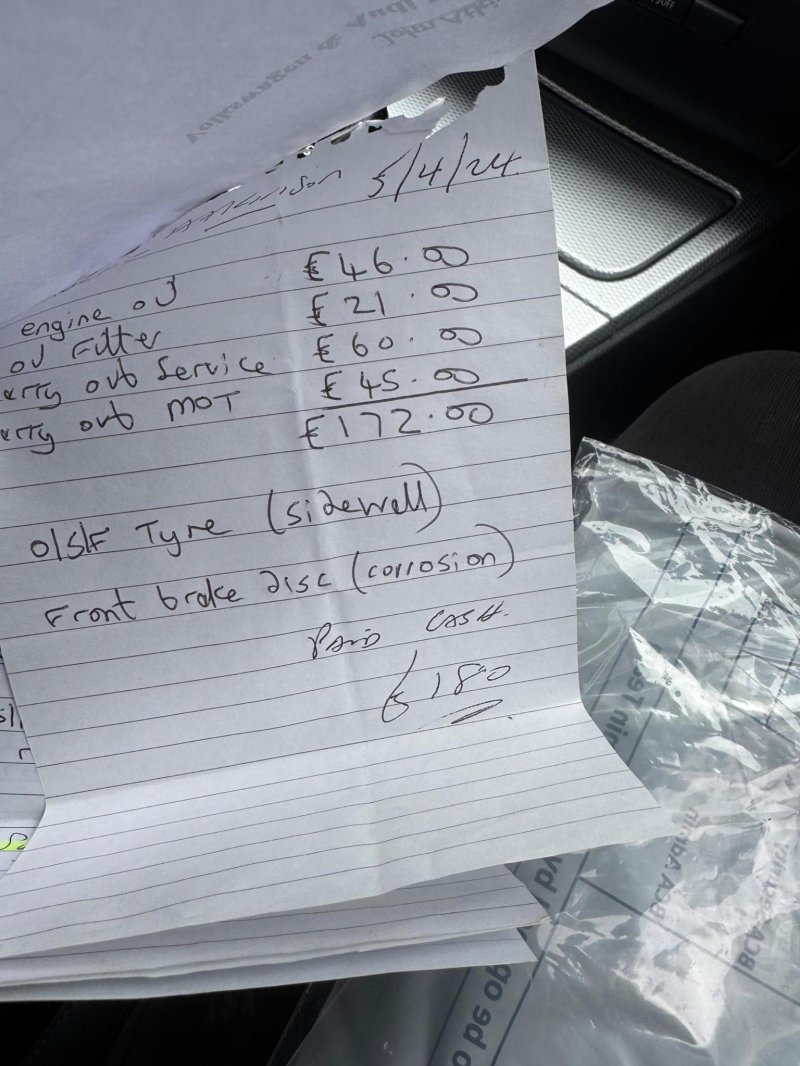 5/4/24
engine oil £46.00
oil Filter £21.00
arry out Service £60.00
arry out MOT £45.00
£172.00
O/S/F Tyre (sidewall)
Front brake disc (corrosion)
PAID CASH.
£180
Volkswagen & Audi
John
BCA Admin